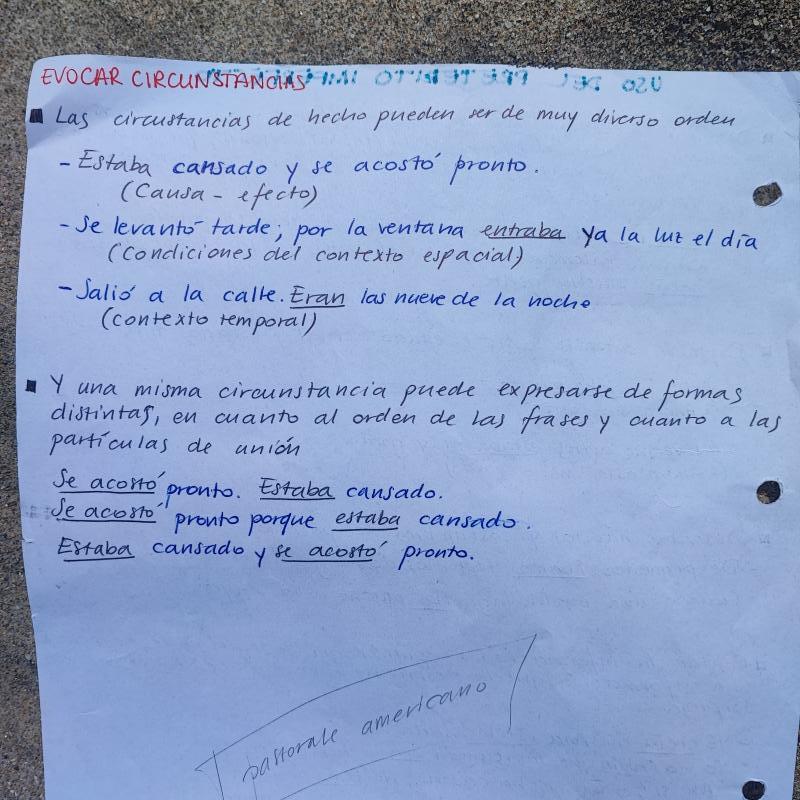 EVOCAR CIRCUNSTANCIAS
USO DEL PRETERITO
Las circustancias de hecho pueden ser de muy diverso orden
- Estaba cansado y se acostó pronto.
(Causa - efecto)
- Se levantó tarde; por la ventana entraba ya la luz el día
(Condiciones del contexto espacial)
- Salió a la calle. Eran las nueve de la noche
(contexto temporal)
Y una misma circunstancia puede expresarse de formas
distintas, en cuanto al orden de las frases y cuanto a las
partículas de unión
Se acostó pronto. Estaba cansado.
Se acostó pronto porque estaba cansado.
Estaba cansado y se acostó pronto.
pastorale americano